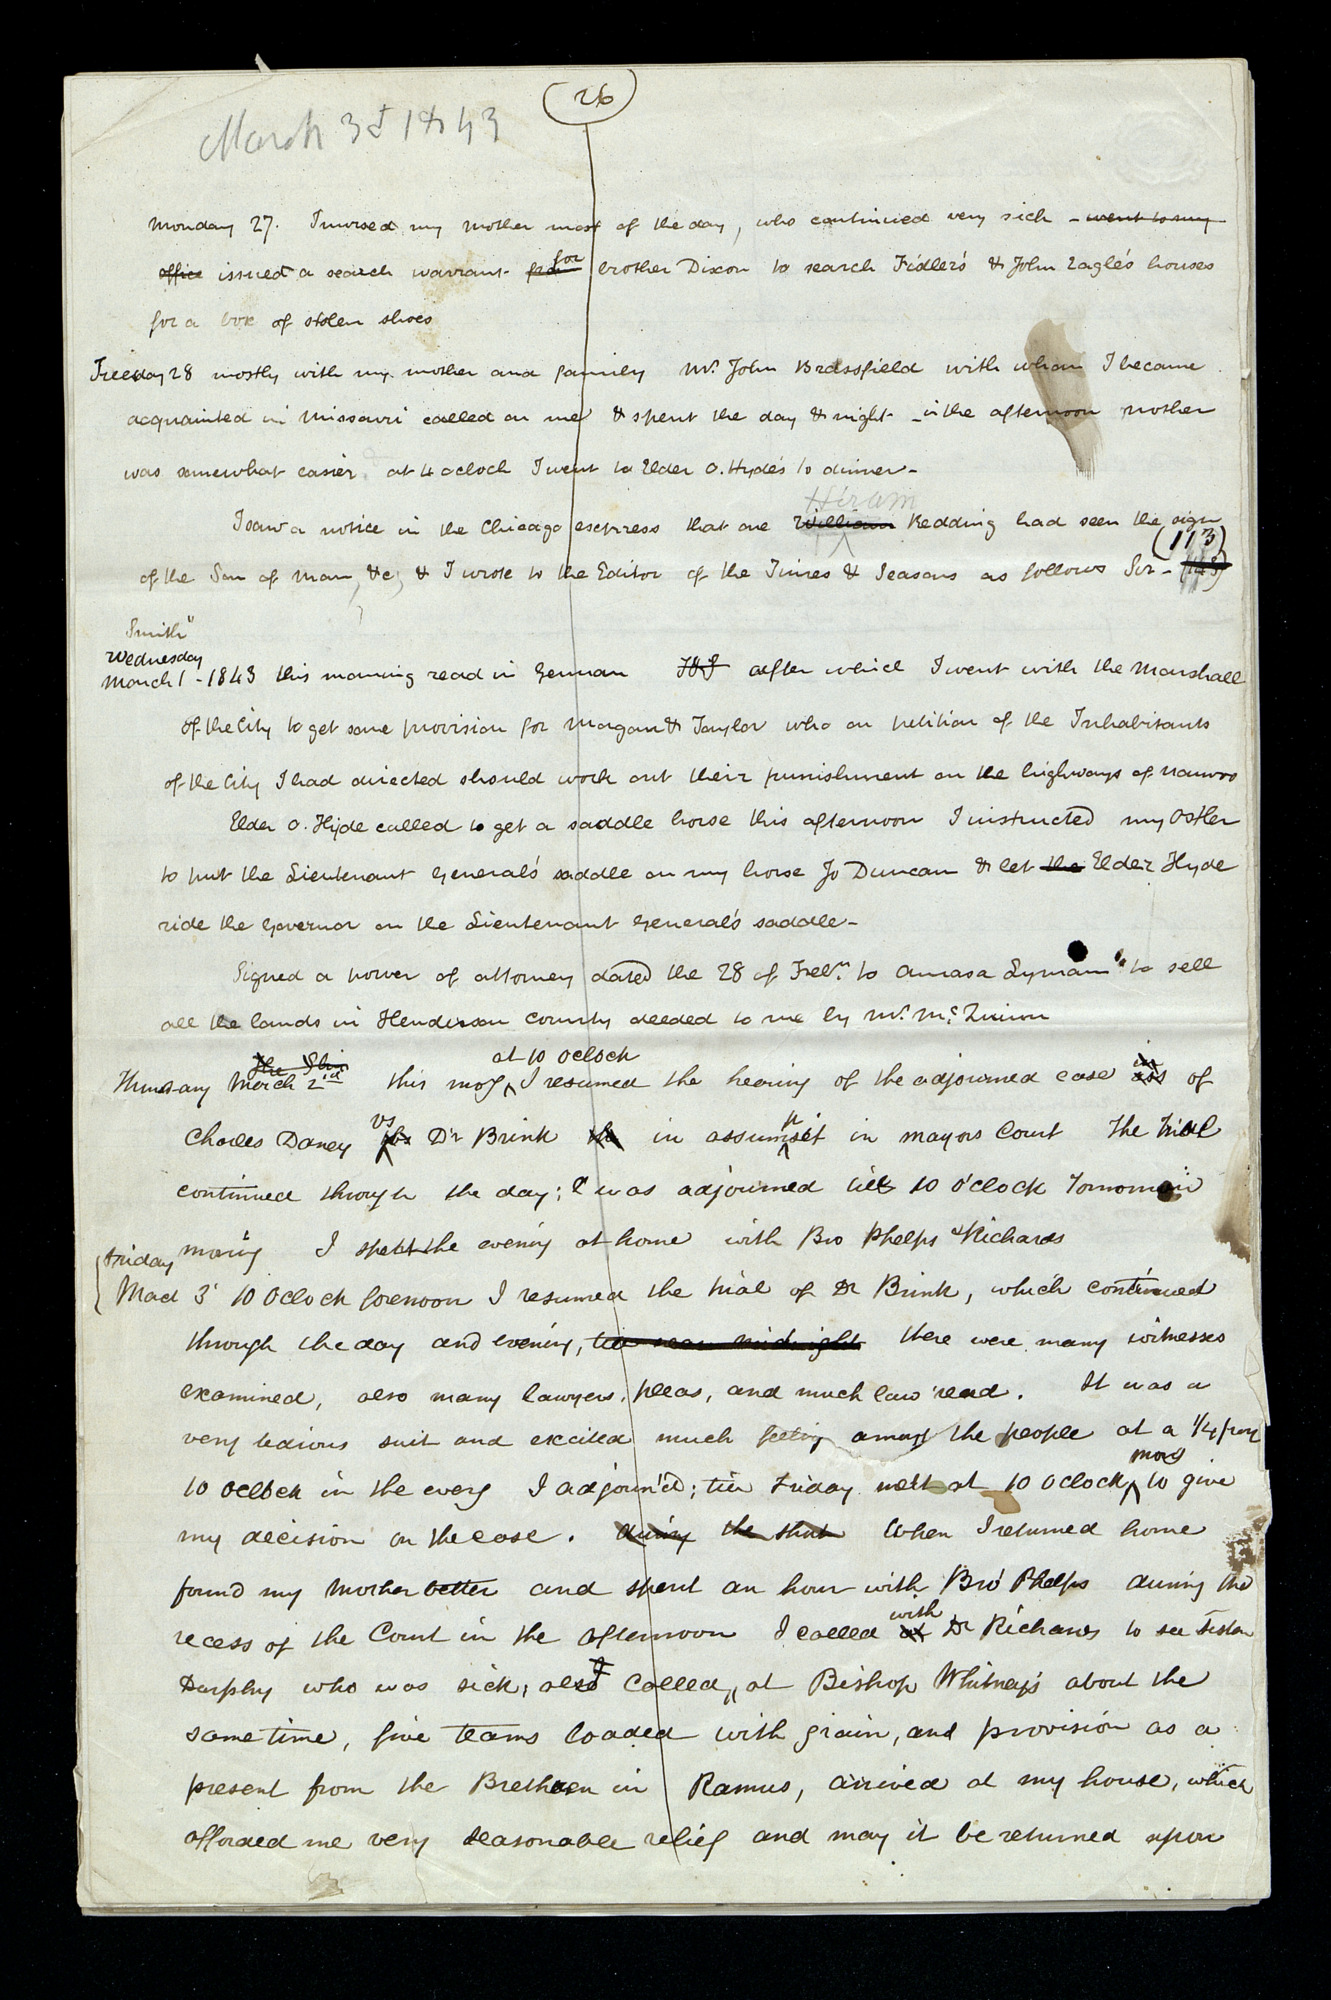 (26)
March 3d 1843
Monday 27. I nursed my mother most of the day, who continued very sick – went to my
office issued a search warrant for brother Dixon to search Fidler's & John Eagle's houses
for a box of stolen shoes
Tuesday 28 mostly with my mother and family Mr. John Brassfield with whom I became
acquainted in Missouri called on me & spent the day & night – in the afternoon mother
was somewhat easier. at 4 oclock I went to Elder O. Hyde's to dinner –
Hiram
I saw a notice in the Chicago express that one William Redding had seen the sign
(113)
of the Son of Man, &c, & I wrote to the Editor of the Times & Seasons as follows Sir –
Smith"
Wednesday
March 1 – 1843 this morning read in German after which I went with the Marshall
of the City to get some provision for Morgan & Taylor who on petition of the Inhabitants
of the City I had directed should work out their punishment on the highways of Nauvoo
Elder O. Hyde called to get a saddle horse this afternoon I instructed my Ostler
to put the Lieutenant General's saddle on my horse Jo Duncan & let the Elder Hyde
ride the Governor on the Lieutenant General's saddle –
Signed a power of attorney dated the 28 of Feby. to Amasa Lyman to sell
all the lands in Henderson County deeded to me by Mr. McQuinn
at 10 oclock
Thursday March 2nd this morg I resumed the hearing of the adjourned case in of
Charles Dancy vs Dr Brink in assumpsit in mayors Court The trial
continued through the day; & was adjourned till 10 o'clock Tomorrow
morng I spent the evening at home with Bro Phelps & Richards
Friday
March 3d 10 Oclock forenoon I resumed the trial of Dr Brink, which continued
through the day and evening, till near midnight there were many witnesses
examined, also many lawyers, pleas, and much law read. It was a
very tedious suit and excited much feeling amongst the people at a 1/4 from
morg
10 oclock in the eveng I adjourn'd; till Friday next at 10 oclock to give
my decision on the case. during the When I returned home
found my mother better and spent an hour with Bro Phelps during the
with
recess of the Court in the afternoon I called at Dr Richards to see Sister
I
Durphy who was sick; also called, at Bishop Whitney's about the
same time, five teams loaded with grain, and provision as a
present from the Brethren in Ramus, arrived at my house, which
afforded me very seasonable relief and may it be returned upon